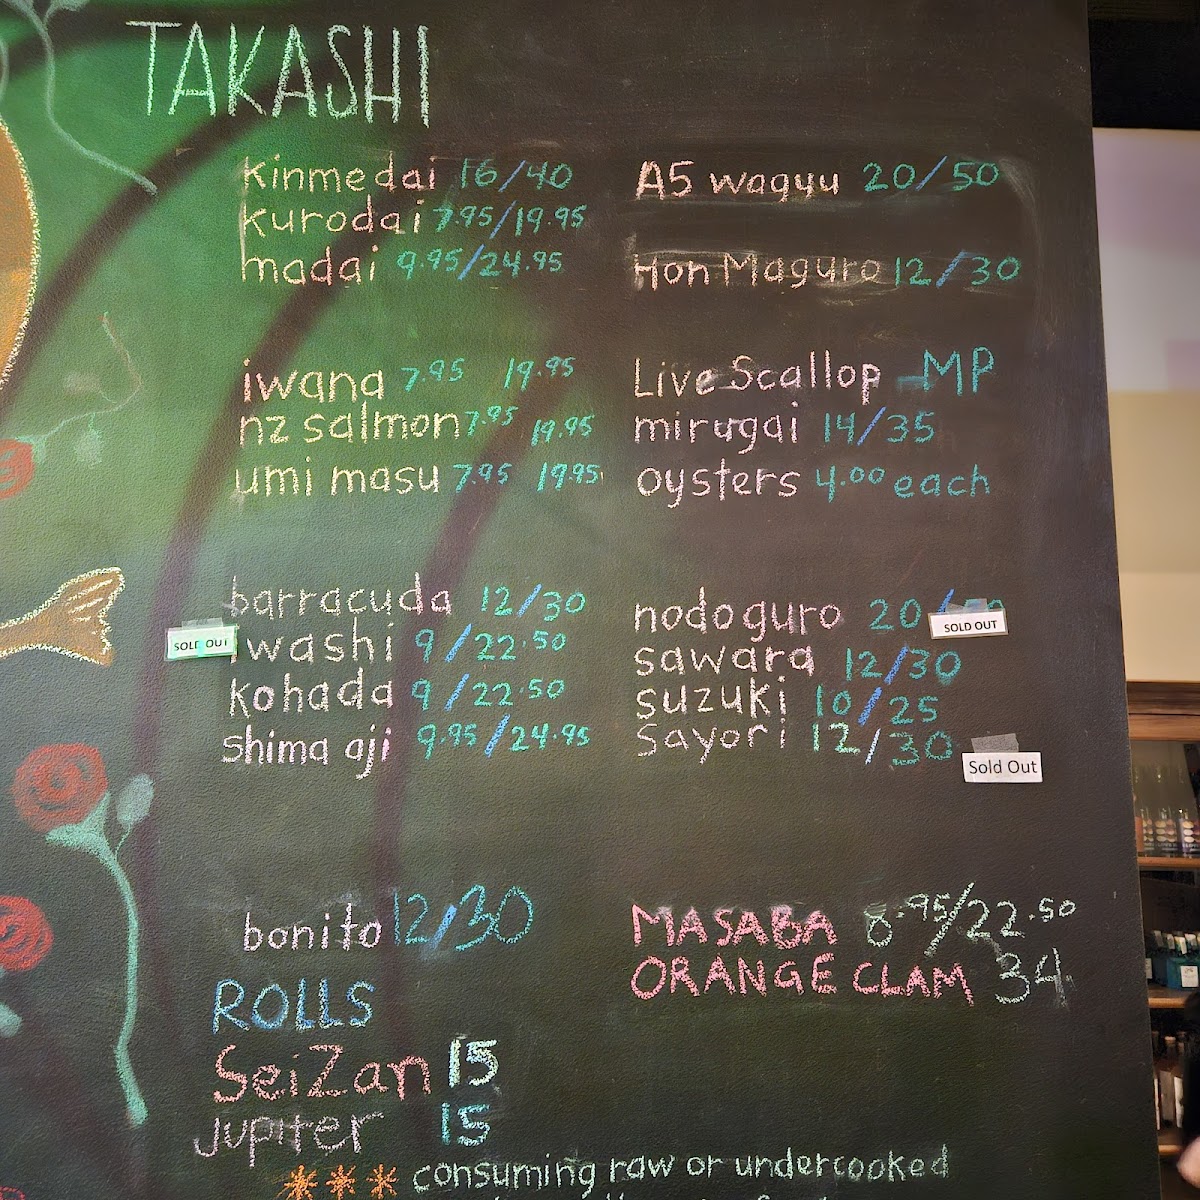 TAKASHI
kinmedai 16/40
kurodai 7.95/19.95
madai 9.95/24.95
iwana 7.95 19.95
nz salmon 7.95 19.95
umi masu 7.95 19.95
barracuda 12/30
SOLD OUT
iwashi 9/22.50
kohada 9/22.50
shima aji 9.95/24.95
bonito 12/30
ROLLS
SeiZan 15
Jupiter 15
A5 wagyu 20/50
Hon Maguro 12/30
Live Scallop MP
mirugai 14/35
oysters 4.00 each
nodoguro 20/
SOLD OUT
sawara 12/30
suzuki 10/25
sayori 12/30
Sold Out
MASABA 8.95/22.50
ORANGE CLAM 34
*** consuming raw or undercooked